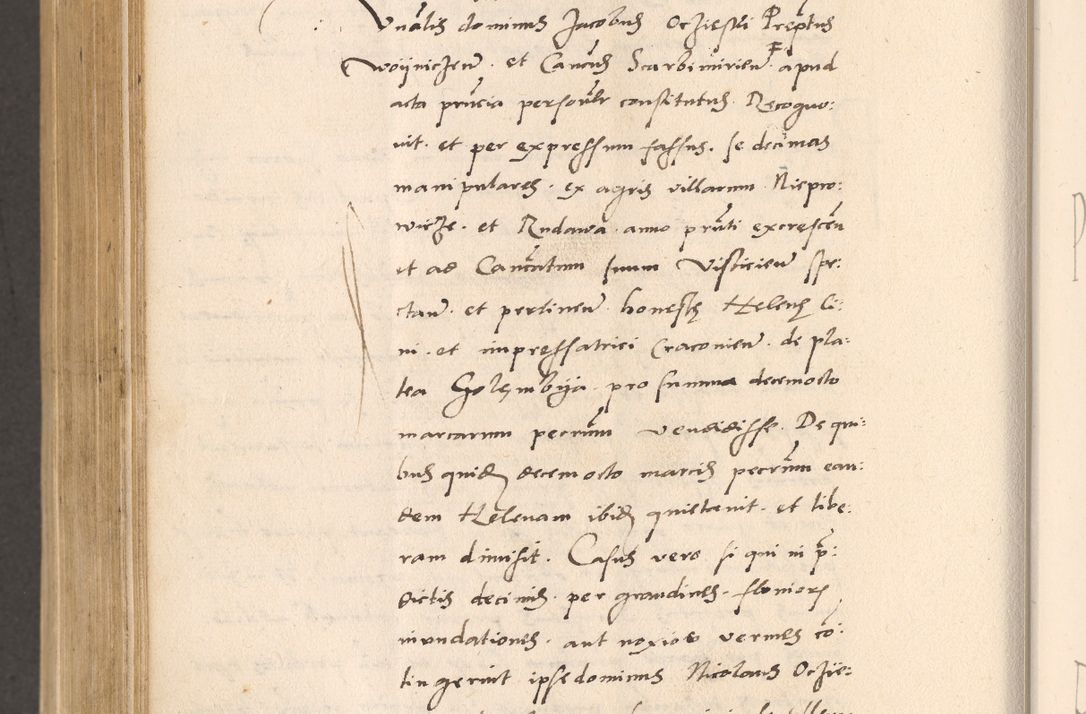 Vnālis dominus Jacobus Oczieski Prēptus
Woyniczeñ. et Cancūs Scarbimirieñ. apud
acta prñcia personālr constitutus Recogno:
uit. et per expressum fassus. se decimas
manipulares. ex agris villarum Niepro:
wicze. et Rudawa. anno prñti excrescēn
et ad Canōcatum suum Visliciensẽ spe:
ctañ. et pertineñ. honeste Helene Ci:
ui. et impressatrici Cracovieñ. de pla:
tea Golembija. pro summa decemocto
marcarum pecrūm vendidisse. De qui:
bus quidẽ decemocto marcis pecrūm ean:
dem Helenam ibidẽ quietauit. et libe:
ram dimisit. Casus vero si qui in p̄:
dictis decimis. per grandines. fluuior
inundationes. aut noxios vermes cō:
tingerint ipse dominus Nicolaus Oczie: